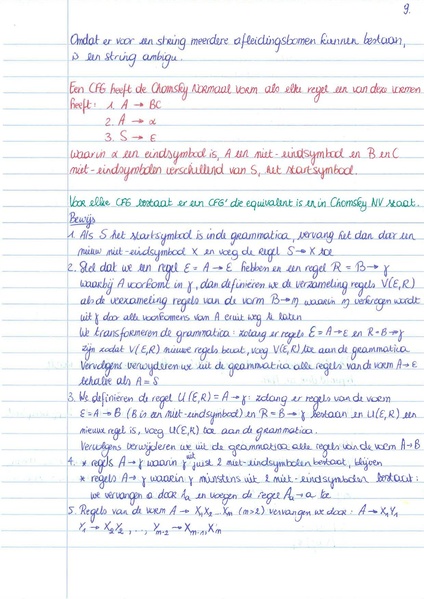 9.
Omdat er voor een string meerdere afleidingsbomen kunnen bestaan,
is een string ambigu.
Een CFG heeft de Chomsky Normaal vorm als elke regel een van deze vormen
heeft: 1. A → BC
2. A → α
3. S → ε
waarin α een eindsymbool is, A een niet-eindsymbool en B en C
niet-eindsymbolen verschillend van S, het startsymbool.
Voor elke CFG bestaat er een CFG' die equivalent is en in Chomsky NV staat.
Bewijs
1. Als S het startsymbool is in de grammatica, vervang het dan door een
nieuw niet-eindsymbool X en voeg de regel S → X toe
2. Stel dat we een regel E = A → ε hebben en een regel R = B → γ
waarbij A voorkomt in γ, dan definiëren we de verzameling regels V(E,R)
als de verzameling regels van de vorm B → η waarin η verkregen wordt
uit γ door alle voorkomens van A eruit weg te laten
We transformeren de grammatica: zolang er regels E = A → ε en R = B → γ
zijn zodat V(E,R) nieuwe regels bevat, voeg V(E,R) toe aan de grammatica
Vervolgens verwijderen we uit de grammatica alle regels van de vorm A → ε
behalve als A = S
3. We definiëren de regel U(E,R) = A → γ: zolang er regels van de vorm
E = A → B (B is een niet-eindsymbool) en R = B → γ bestaan en U(E,R) een
nieuwe regel is, voeg U(E,R) toe aan de grammatica.
Vervolgens verwijderen we uit de grammatica alle regels van de vorm A → B
4. * regels A → γ waarin γ uit juist 2 niet-eindsymbolen bestaat, blijven
* regels A → γ waarin γ minstens uit 2 niet-eindsymbolen bestaat:
we vervangen a door Aₐ en voegen de regel Aₐ → a toe
5. Regels van de vorm A → X₁X₂...Xₘ (m>2) vervangen we door: A → X₁Y₁
Y₁ → X₂Y₂ , ..., Yₘ₋₂ → Xₘ₋₁Xₘ